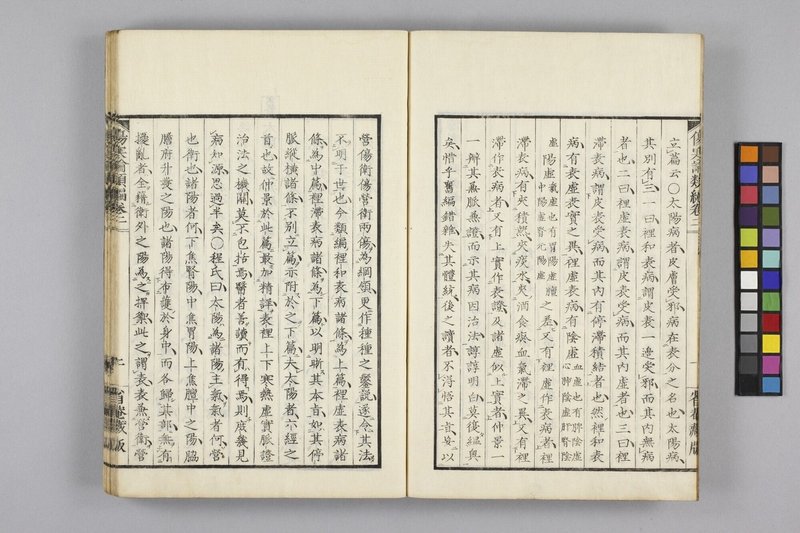 傷寒論類編卷二
立篇云〇太陽病者皮膚受邪病在表分之名也太陽病
其別有三一曰裡和表病謂皮表一邊受邪而其內無病
者也二曰裡虛表病謂皮表受病而其內虛者也三曰裡
滯表病謂皮表受病而其內有停滯積結者也然裡和表
病有表虛表實之異裡虛表病有陰虛血虛也有脾陰虛
心肺陰虛肝腎陰
虛陽虛氣虛也有胃陽虛膻
中陽虛腎元陽虛之差又有裡虛作表病者裡
滯表病有夾積熱夾痰水夾酒食瘀血氣滯之異又有裡
滯作表病者又有上實作表證及諸虛似上實者仲景一
一辨其兼脈兼證而示其病因治法諄諄明白莫復縊奧
矣惜乎舊編錯雜失其體統後之讀者不得悟其旨妄以
營傷衛傷營衛兩傷為綱領更作種種之鑿說遂令其法
不明于世也今類編裡和表病諸條為上篇裡虛表病諸
條為中篇裡滯表病諸條為下篇以明晰其本旨如其停
脈縱橫諸條不別立篇亦附於之下篇夫太陽者六經之
首也故仲景於此篇最加精詳表裡上下寒熱虛實脈證
治法之機關莫不包括焉醫者善讀而有得焉則庶幾見
病知源思過半矣〇程氏曰太陽為諸陽主氣氣者何營
也衛也諸陽者何下焦腎陽中焦胃陽上焦膻中之陽脇
膽府升發之陽也諸陽得布護於身中而各鎮其部無有
擾亂者全藉衛外之陽為之捍禦此之謂表表兼營衛營